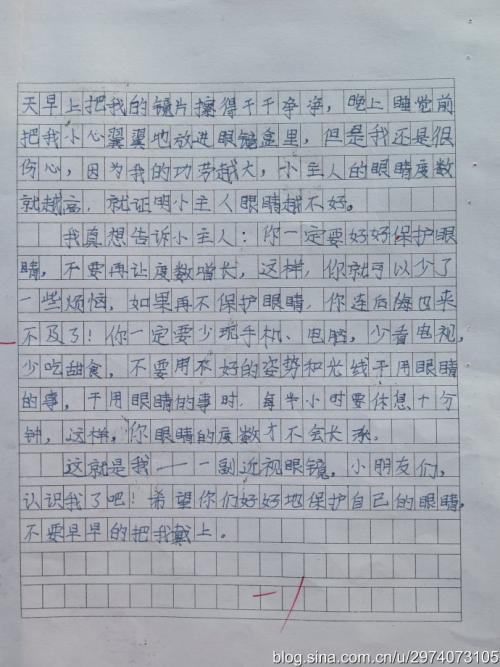 天早上把我的镜片擦得干干净净，晚上睡觉前
把我小心翼翼地放进眼镜盒里，但是我还是很
伤心，因为我的功劳越大，小主人的眼睛度数
就越高，就证明小主人眼睛越不好。
我真想告诉小主人：你一定要好好保护眼
睛，不要再让度数增长，这样，你就可以少了
一些烦恼，如果再不保护眼睛，你连后悔也来
不及了！你一定要少玩手机、电脑，少看电视，
少吃甜食，不要用不好的姿势和光线干用眼睛
的事，干用眼睛的事时，每半小时要休息十分
钟，这样，你眼睛的度数才不会长涿。
这就是我——一副近视眼镜，小朋友们，
认识我了吧！希望你们好好地保护自己的眼睛，
不要早早的把我戴上。
blog.sina.com.cn/u/2974073105